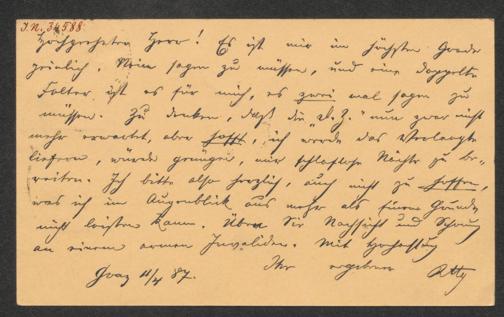 I.N. 34588.
Hochgeehrter Herr! Es ist mir im höchsten Grade
peinlich, Nein sagen zu müssen, und eine doppelte
Folter ist es für mich, es zwei mal sagen zu
müssen. Zu denken, daß die „D. Z.“ nun zwar nicht
mehr erwartet, aber hofft, ich werde das Verlangte
liefern, würde genügen, mir schlaflose Nächte zu be-
reiten. Ich bitte also herzlich, auch nicht zu hoffen,
was ich im Augenblick aus mehr als einem Grunde
nicht leisten kann. Üben Sie Nachsicht und Schonung
an einem armen Invaliden. Mit Hochachtung
Ihr ergebener
Graz 11/4 87.